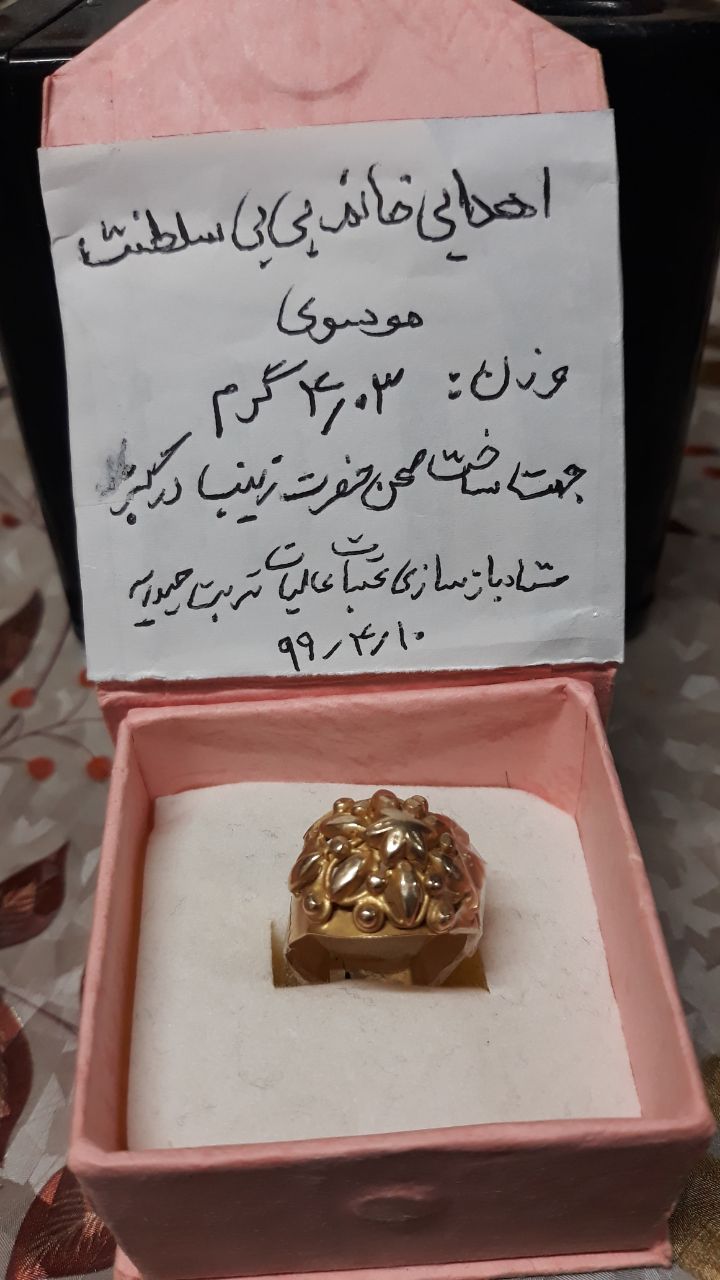 اهدایی خانم بی بی سلطنت
موسوی
وزن: ۴٫۰۳ گرم
جهت ساخت صحن حضرت زینب در
ستاد بازسازی عتبات عالیات تربت حیدریه
۹۹٫۴٫۱۰